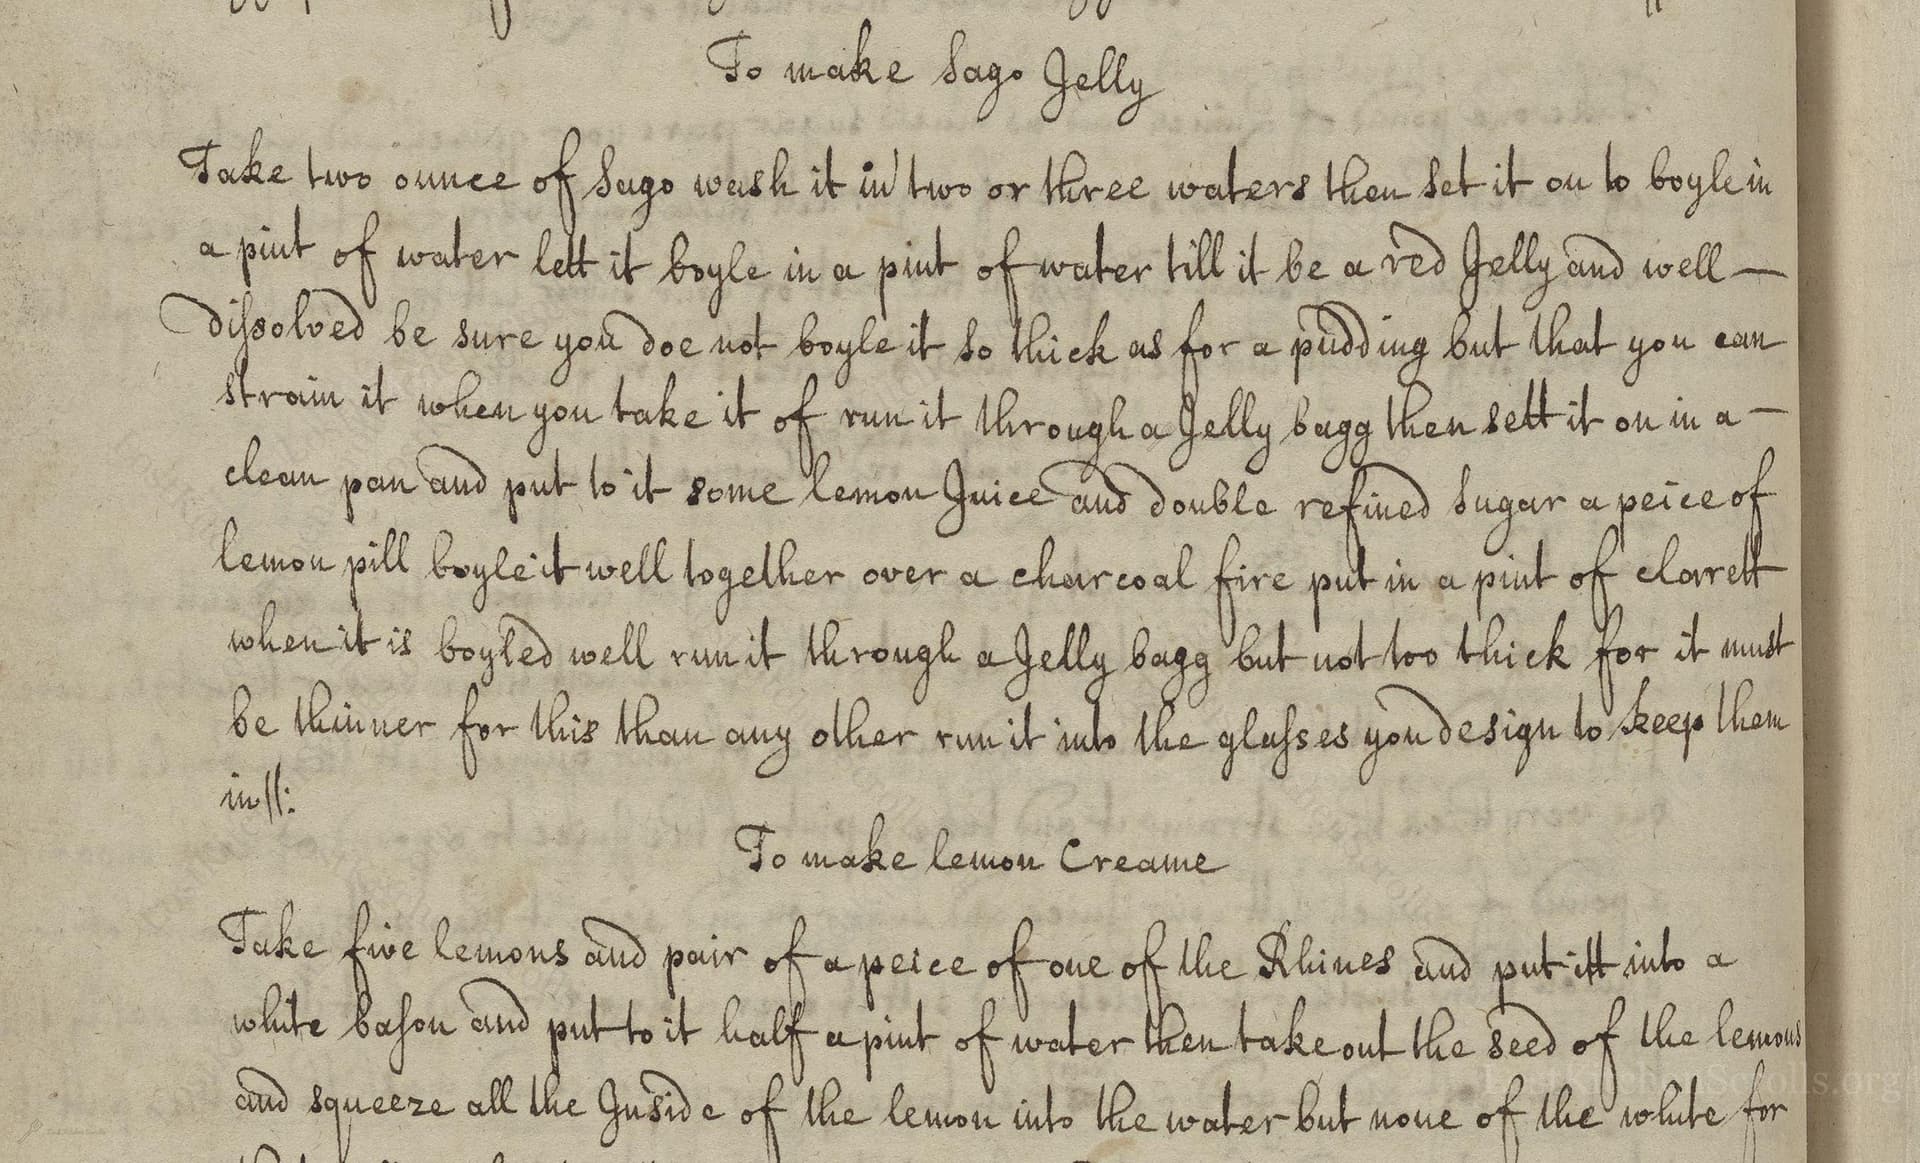 To make Sago Jelly
Take two ounce of Sago wash it in two or three waters then set it on to boyle in
a pint of water lett it boyle in a pint of water till it be a red Jelly and well —
dissolved be sure you doe not boyle it so thick as for a pudding but that you can
strain it when you take it of run it through a Jelly bagg then sett it on in a —
clean pan and put to it some lemon Juice and double refined sugar a peice of
lemon pill boyle it well together over a charcoal fire put in a pint of clarett
when it is boyled well run it through a Jelly bagg but not too thick for it must
be thinner for this than any other run it into the glasses you design to keep them
in //:
To make lemon Creame
Take five lemons and pair of a peice of one of the Rhines and put itt into a
white bason and put to it half a pint of water then take out the seed of the lemons
and squeeze all the Inside of the lemon into the water but none of the white for